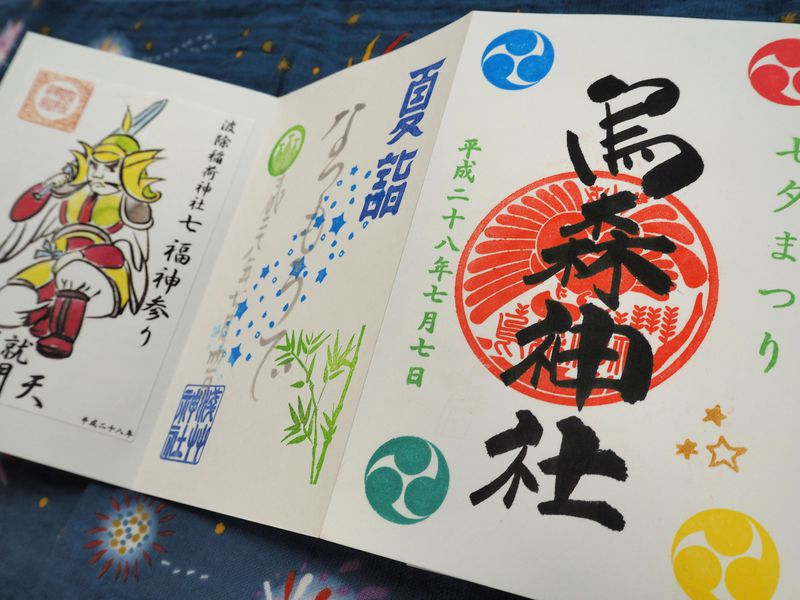 七夕まつり
烏森神社
平成二十八年七月七日
夏詣
なつもうで
浅草
神社
波除稲荷神社七福神参り
平成二十八年